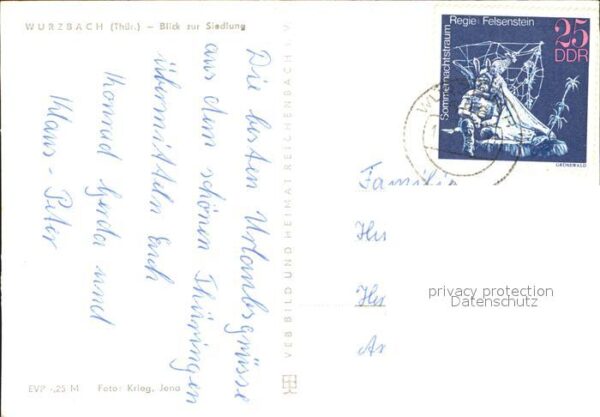 WURZBACH (Thür.) – Blick zur Siedlung
Die besten Urlaubsgrüsse
aus dem schönen Thüringen
übermitteln Euch
Konrad Gerda und
Klaus-Peter
EVP -,25 M Foto: Krieg, Jena
VEB BILD UND HEIMAT REICHENBACH i. V.
Sommernachtstraum
Regie: Felsenstein
25
DDR
GRÜNEWALD
WU
Familie
privacy protection
Datenschutz